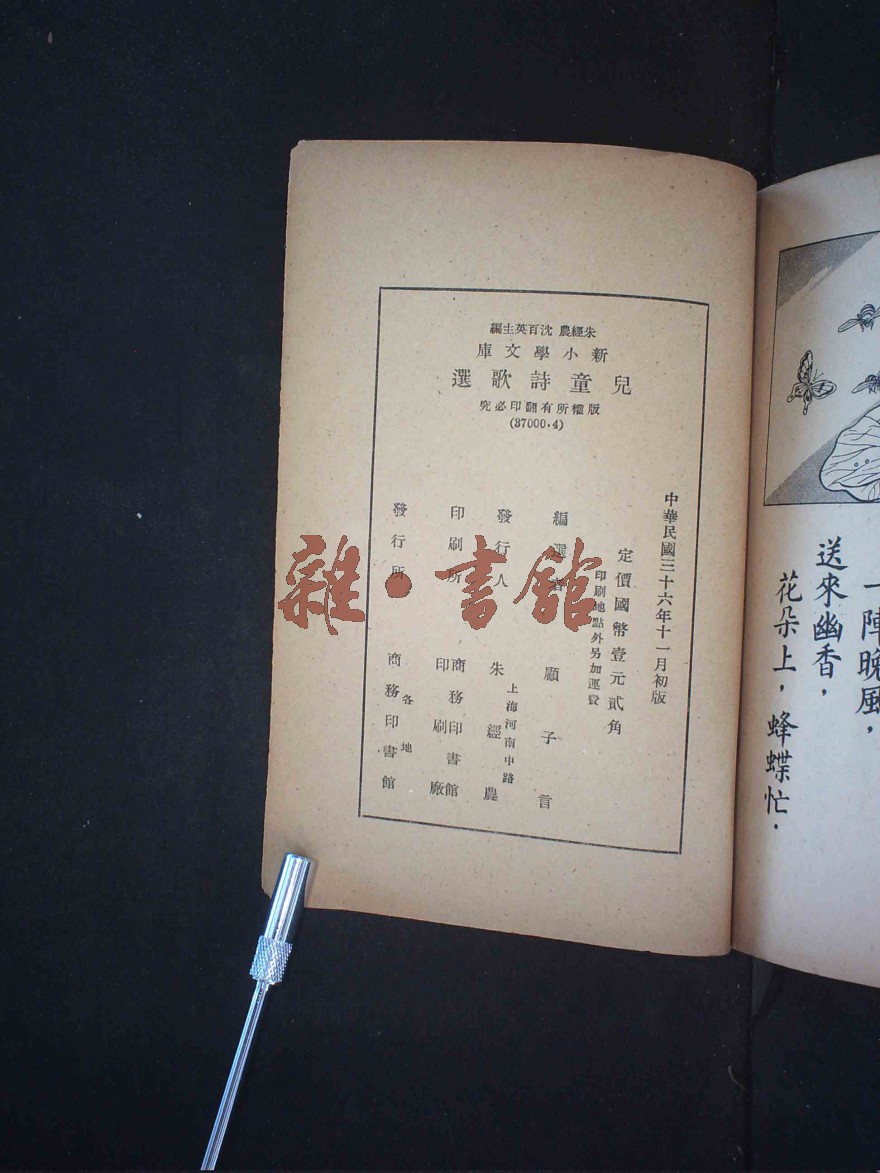 朱經農 沈百英主編
新小學文庫
兒童詩歌選
版權所有翻印必究
(37000·4)
中華民國三十六年十一月初版
定價國幣壹元貳角
印刷地點外另加運費
編選者 顧子言
發行人 朱經農
上海河南中路
印刷所 商務印書館
印刷廠
發行所 各地
商務印書館
雜·書館
一陣晚風，
送來幽香，
花朵上，蜂蝶忙．